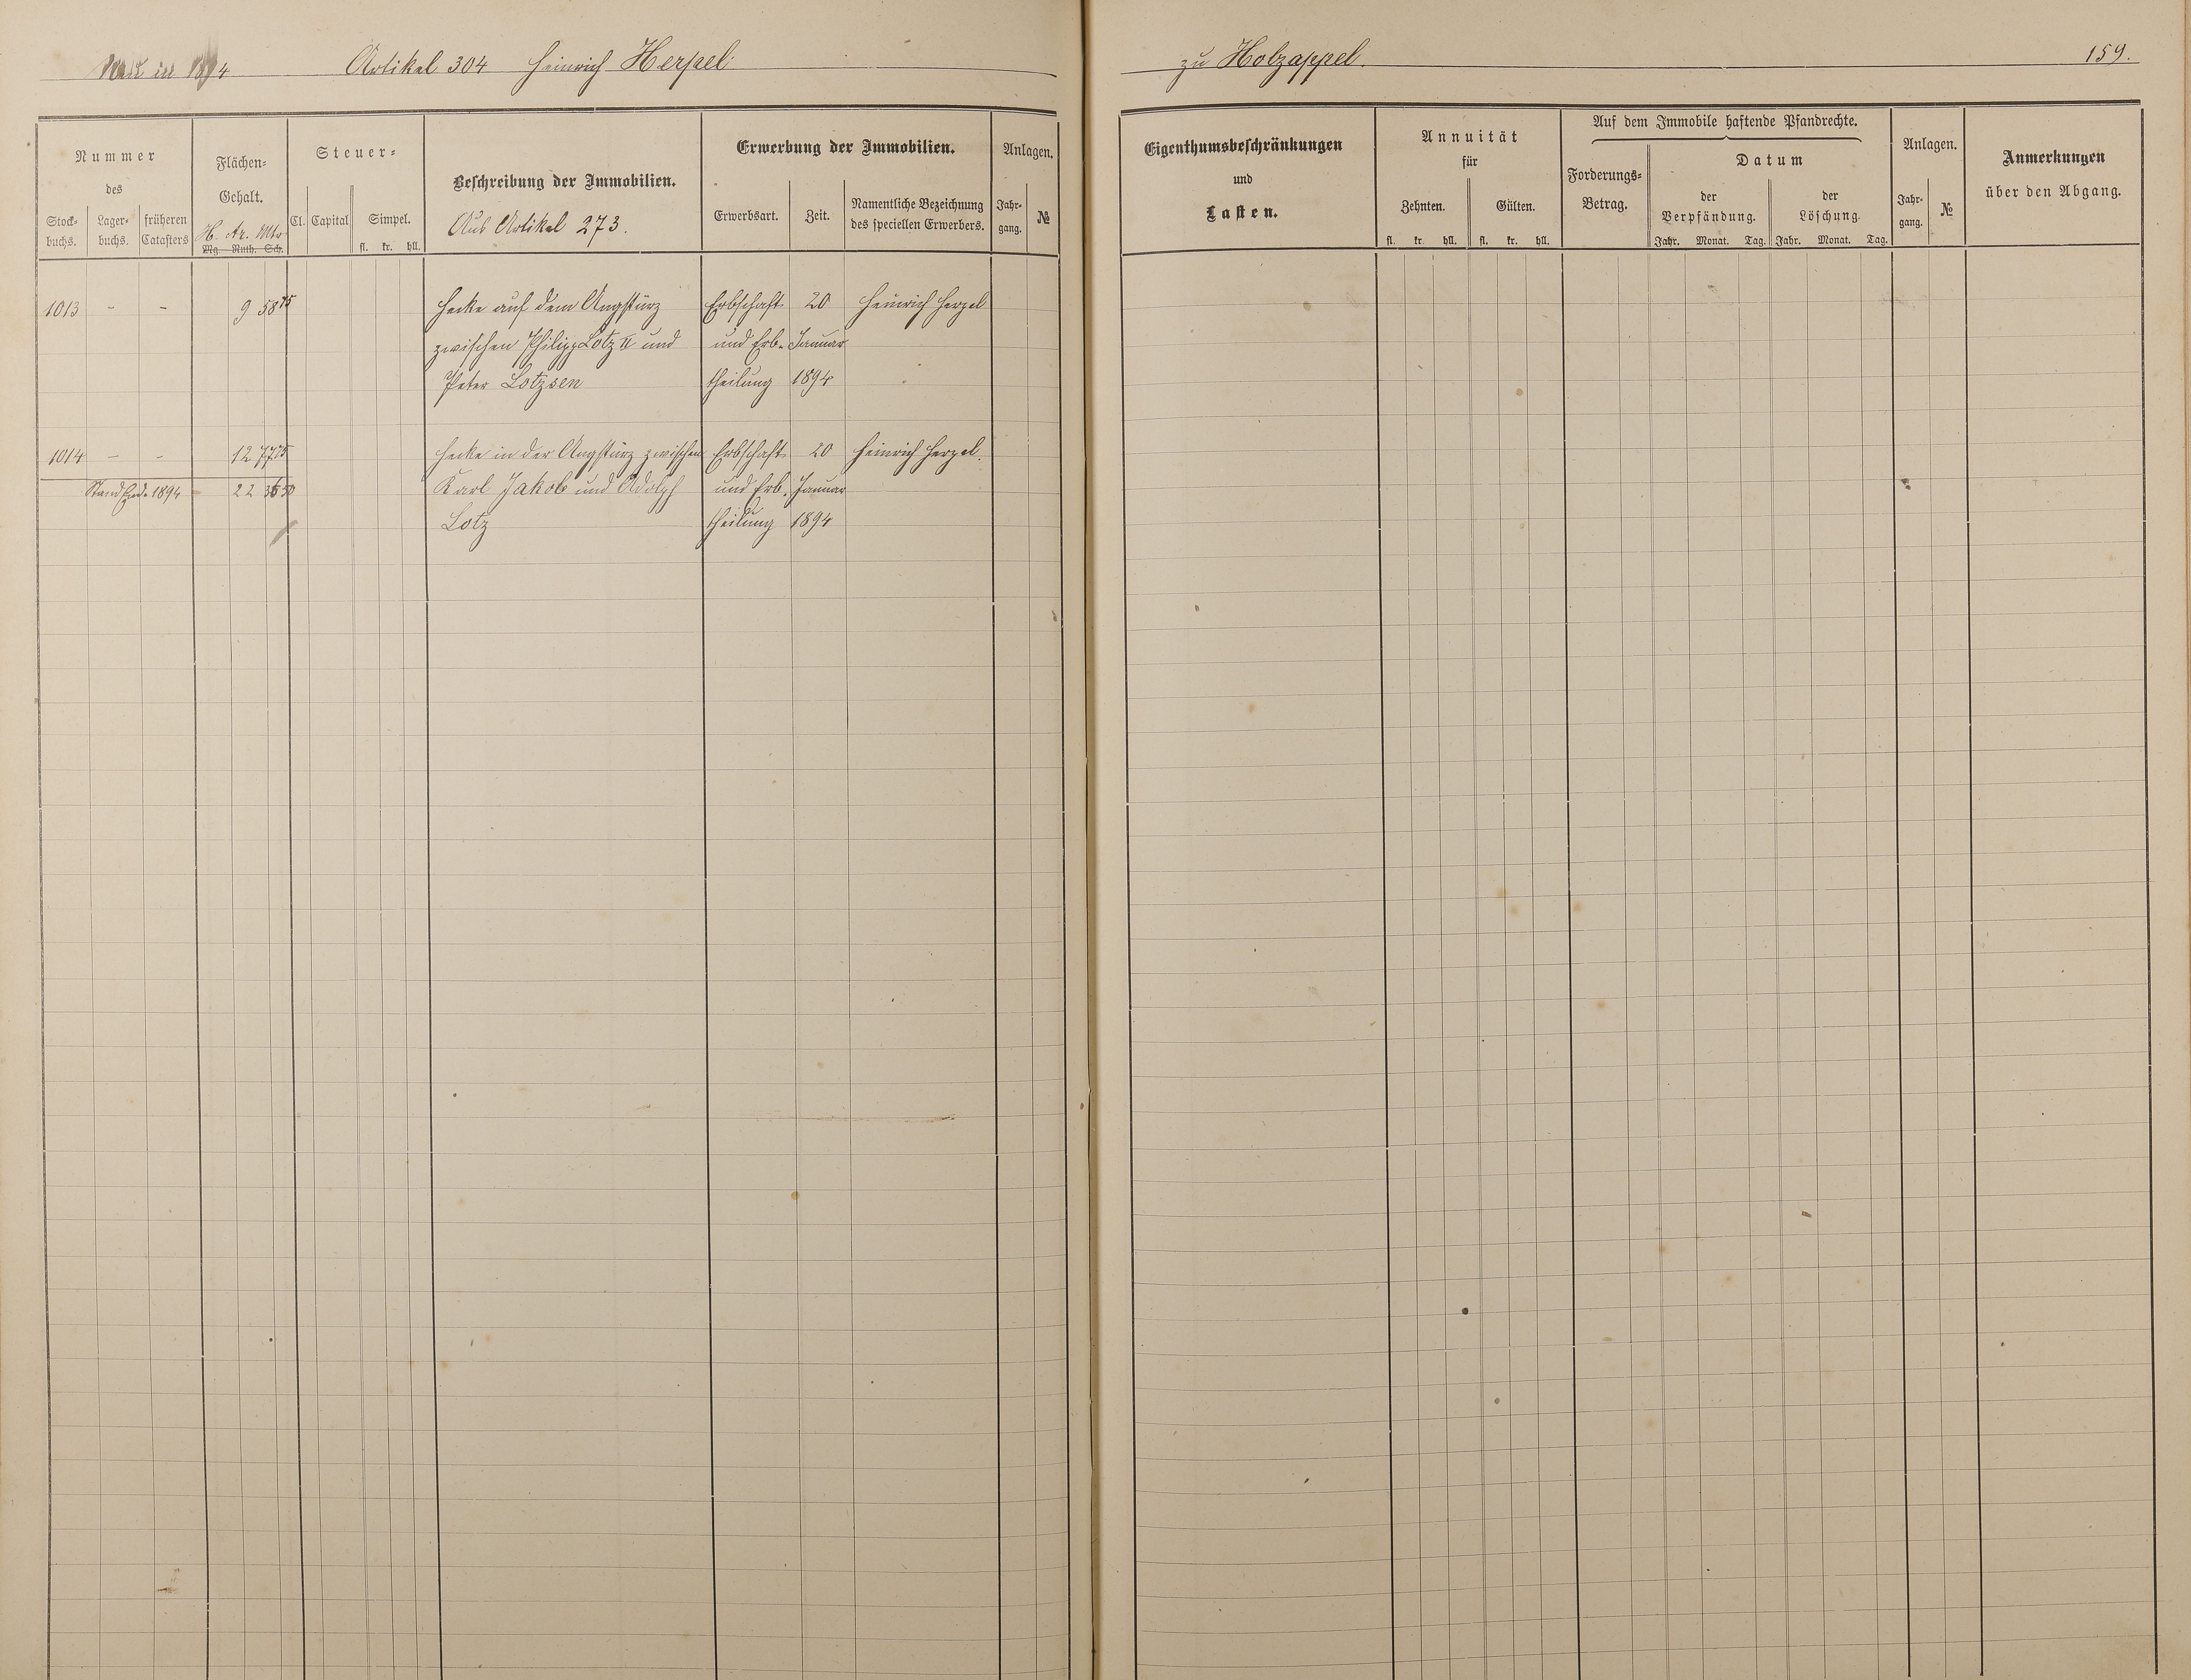 1894 Artikel 304 Heinrich Herpel zu Holzappel. 159.
Nummer
des
Stock-
buchs.
Lager-
buchs.
früheren
Catasters
Flächen-
Gehalt.
H. Ar. Mtr
Mg. Ruth. Sch.
Steuer-
Cl. Capital Simpel.
fl. kr. hll.
Beschreibung der Immobilien.
Aus Artikel 273.
Erwerbung der Immobilien.
Erwerbsart. Zeit.
Namentliche Bezeichnung
des speciellen Erwerbers.
Anlagen.
Jahr-
gang.
№
Eigenthumsbeschränkungen
und
Lasten.
Annuität
für
Zehnten. Gülten.
fl. kr. hll. fl. kr. hll.
Auf dem Immobile haftende Pfandrechte.
Forderungs-
Betrag.
Datum
der
Verpfändung.
der
Löschung.
Jahr. Monat. Tag. Jahr. Monat. Tag.
Anlagen.
Jahr-
gang.
№
Anmerkungen
über den Abgang.
1013 - - 9 58 75 Hecke auf dem Angstürz Erbschaft 20 Heinrich Herpel
zwischen Philipp Lotz II und und Erb- Januar
Peter Lotzsen theilung 1894
1014 - - 12 77 75 Hecke in der Angstürz zwischen Erbschaft 20 Heinrich Herpel.
Stand Ende 1894 22 36 50 Karl Jakob und Adolph und Erb- Januar
Lotz theilung 1894